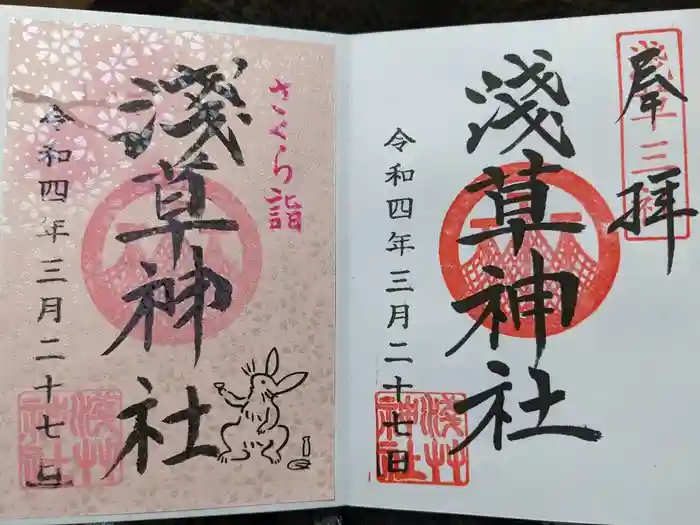 奉拝
浅草三社
淺草神社
令和四年三月二十七日
浅草神社
さくら詣
淺草神社
令和四年三月二十七日
浅草神社